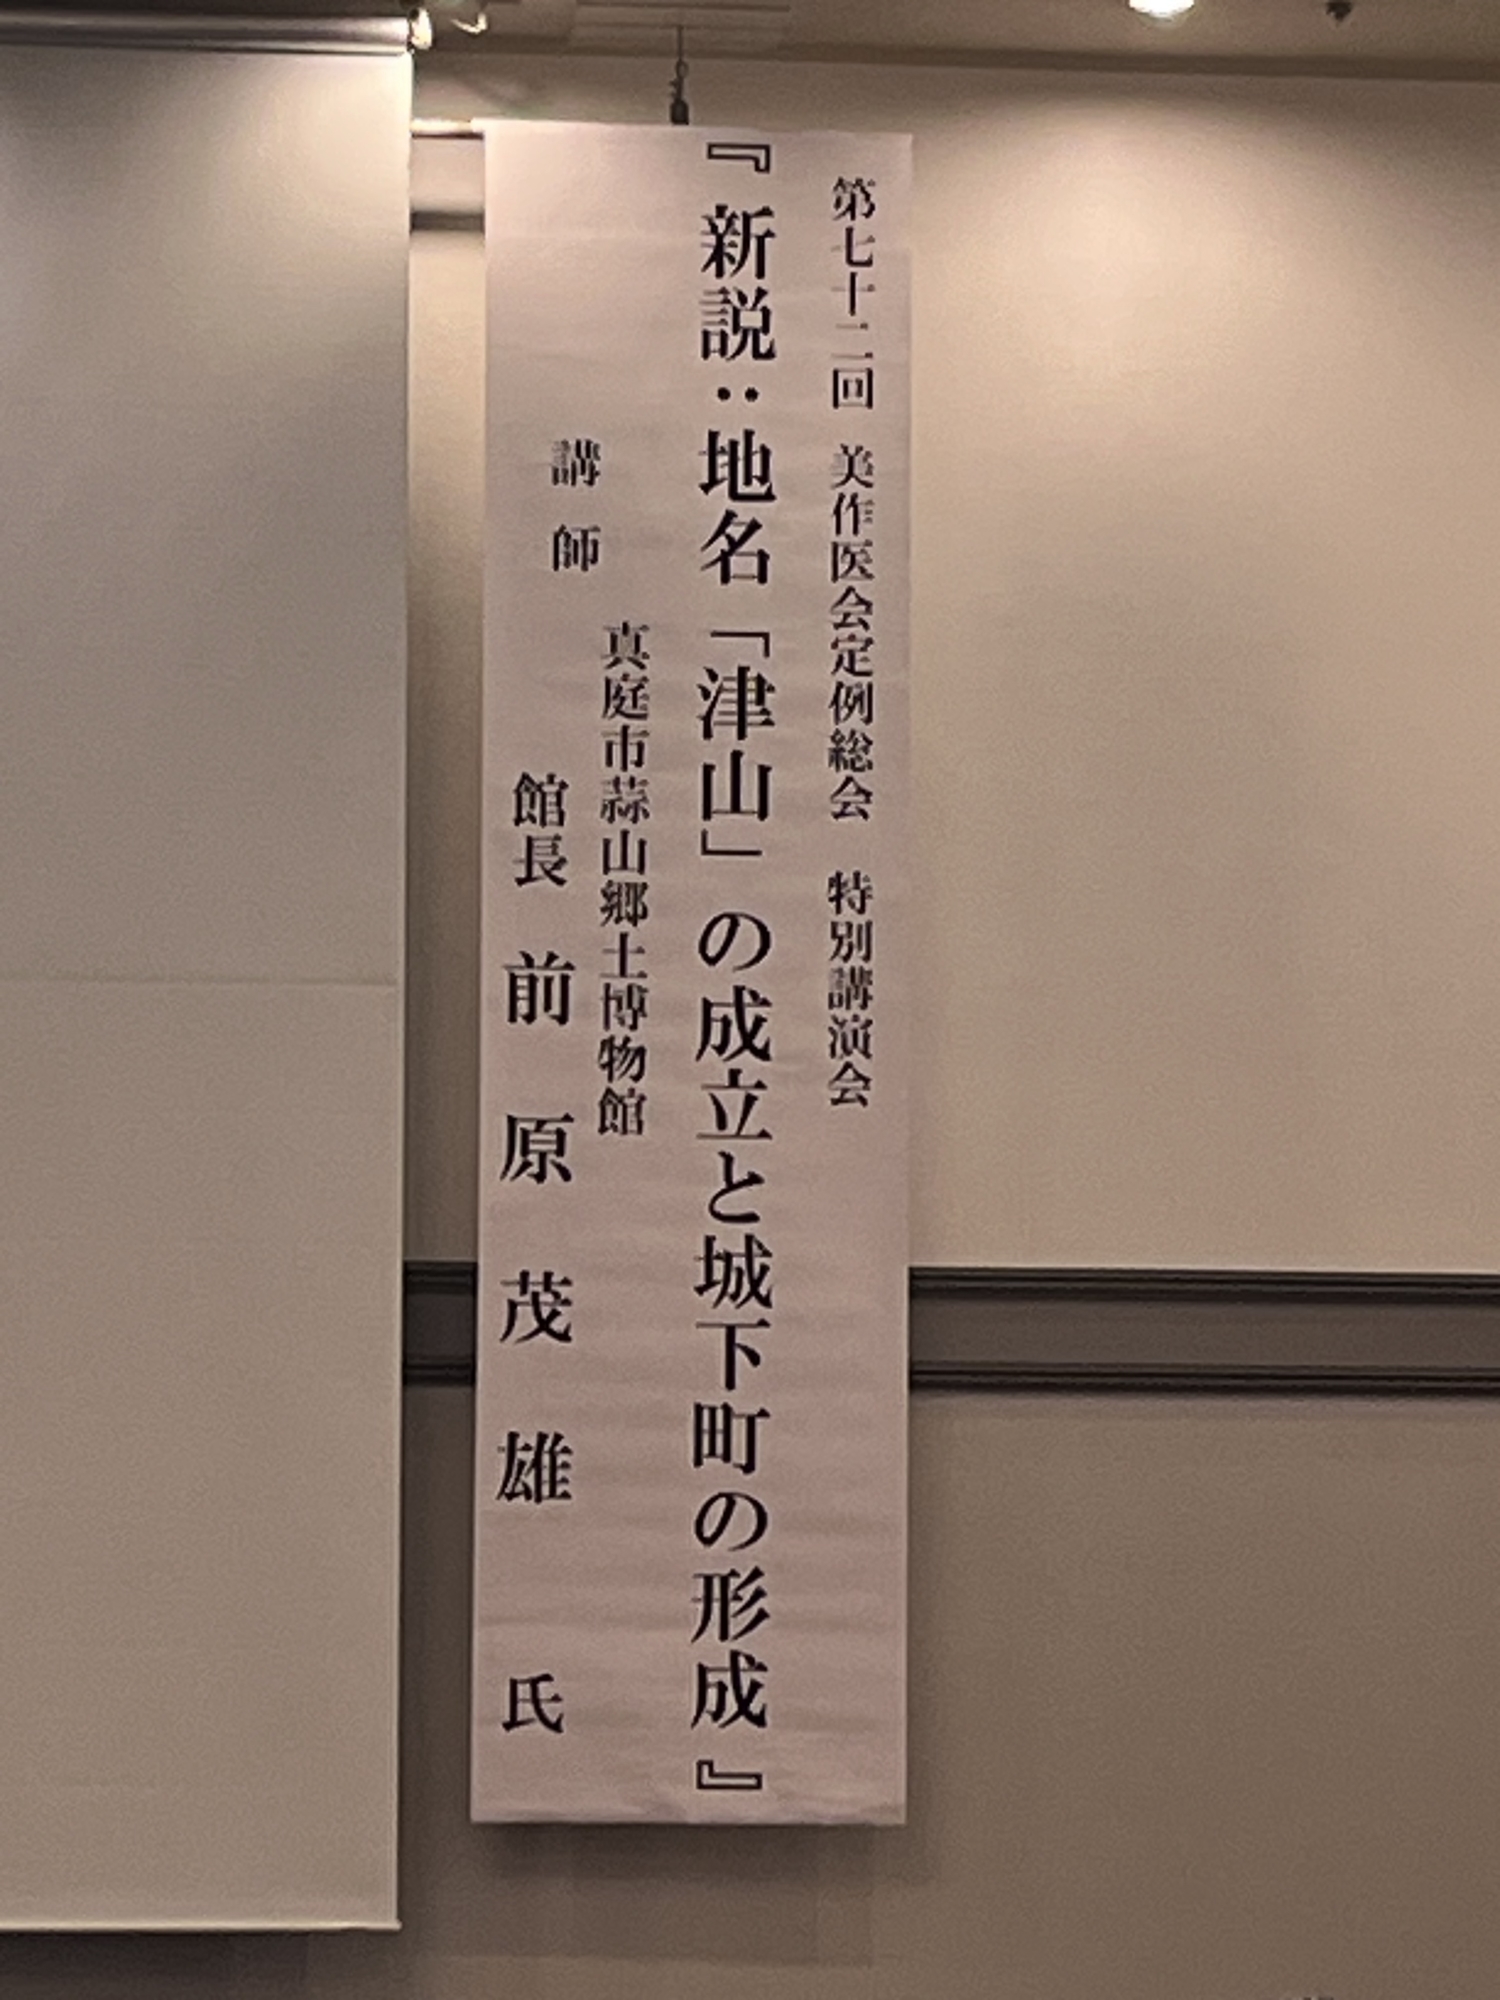 第七十二回　美作医会定例総会　特別講演会
『新説：地名「津山」の成立と城下町の形成』
講師
真庭市蒜山郷土博物館
館長　前原茂雄　氏